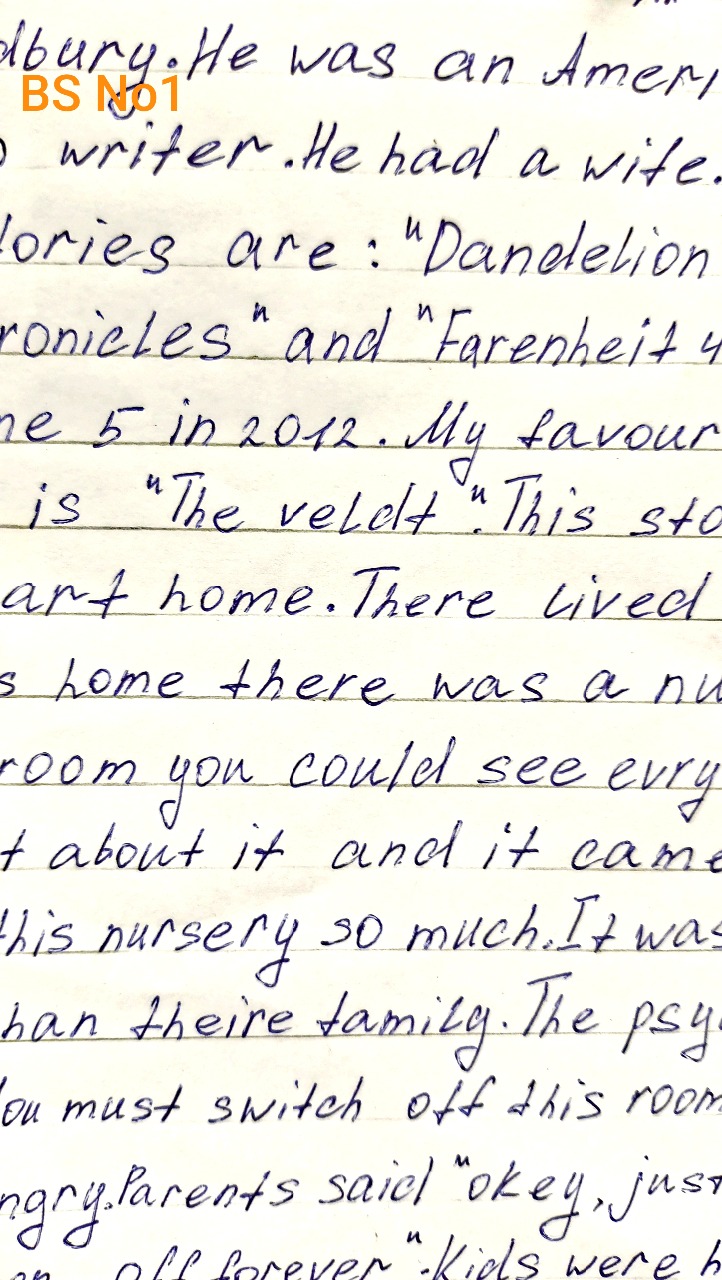 dbury. He was an Ameri
BS No1
writer. He had a wife.
tories are: "Dandelion
ronicles" and "Farenheit 4
ne 5 in 2012. My favour
is "The veldt". This sto
art home. There lived
s home there was a nu
room you could see evry
t about it and it came
this nursery so much. It was
han theire family. The psy
You must switch off this room
ngry. Parents said "okey, just
off forever". Kids were h